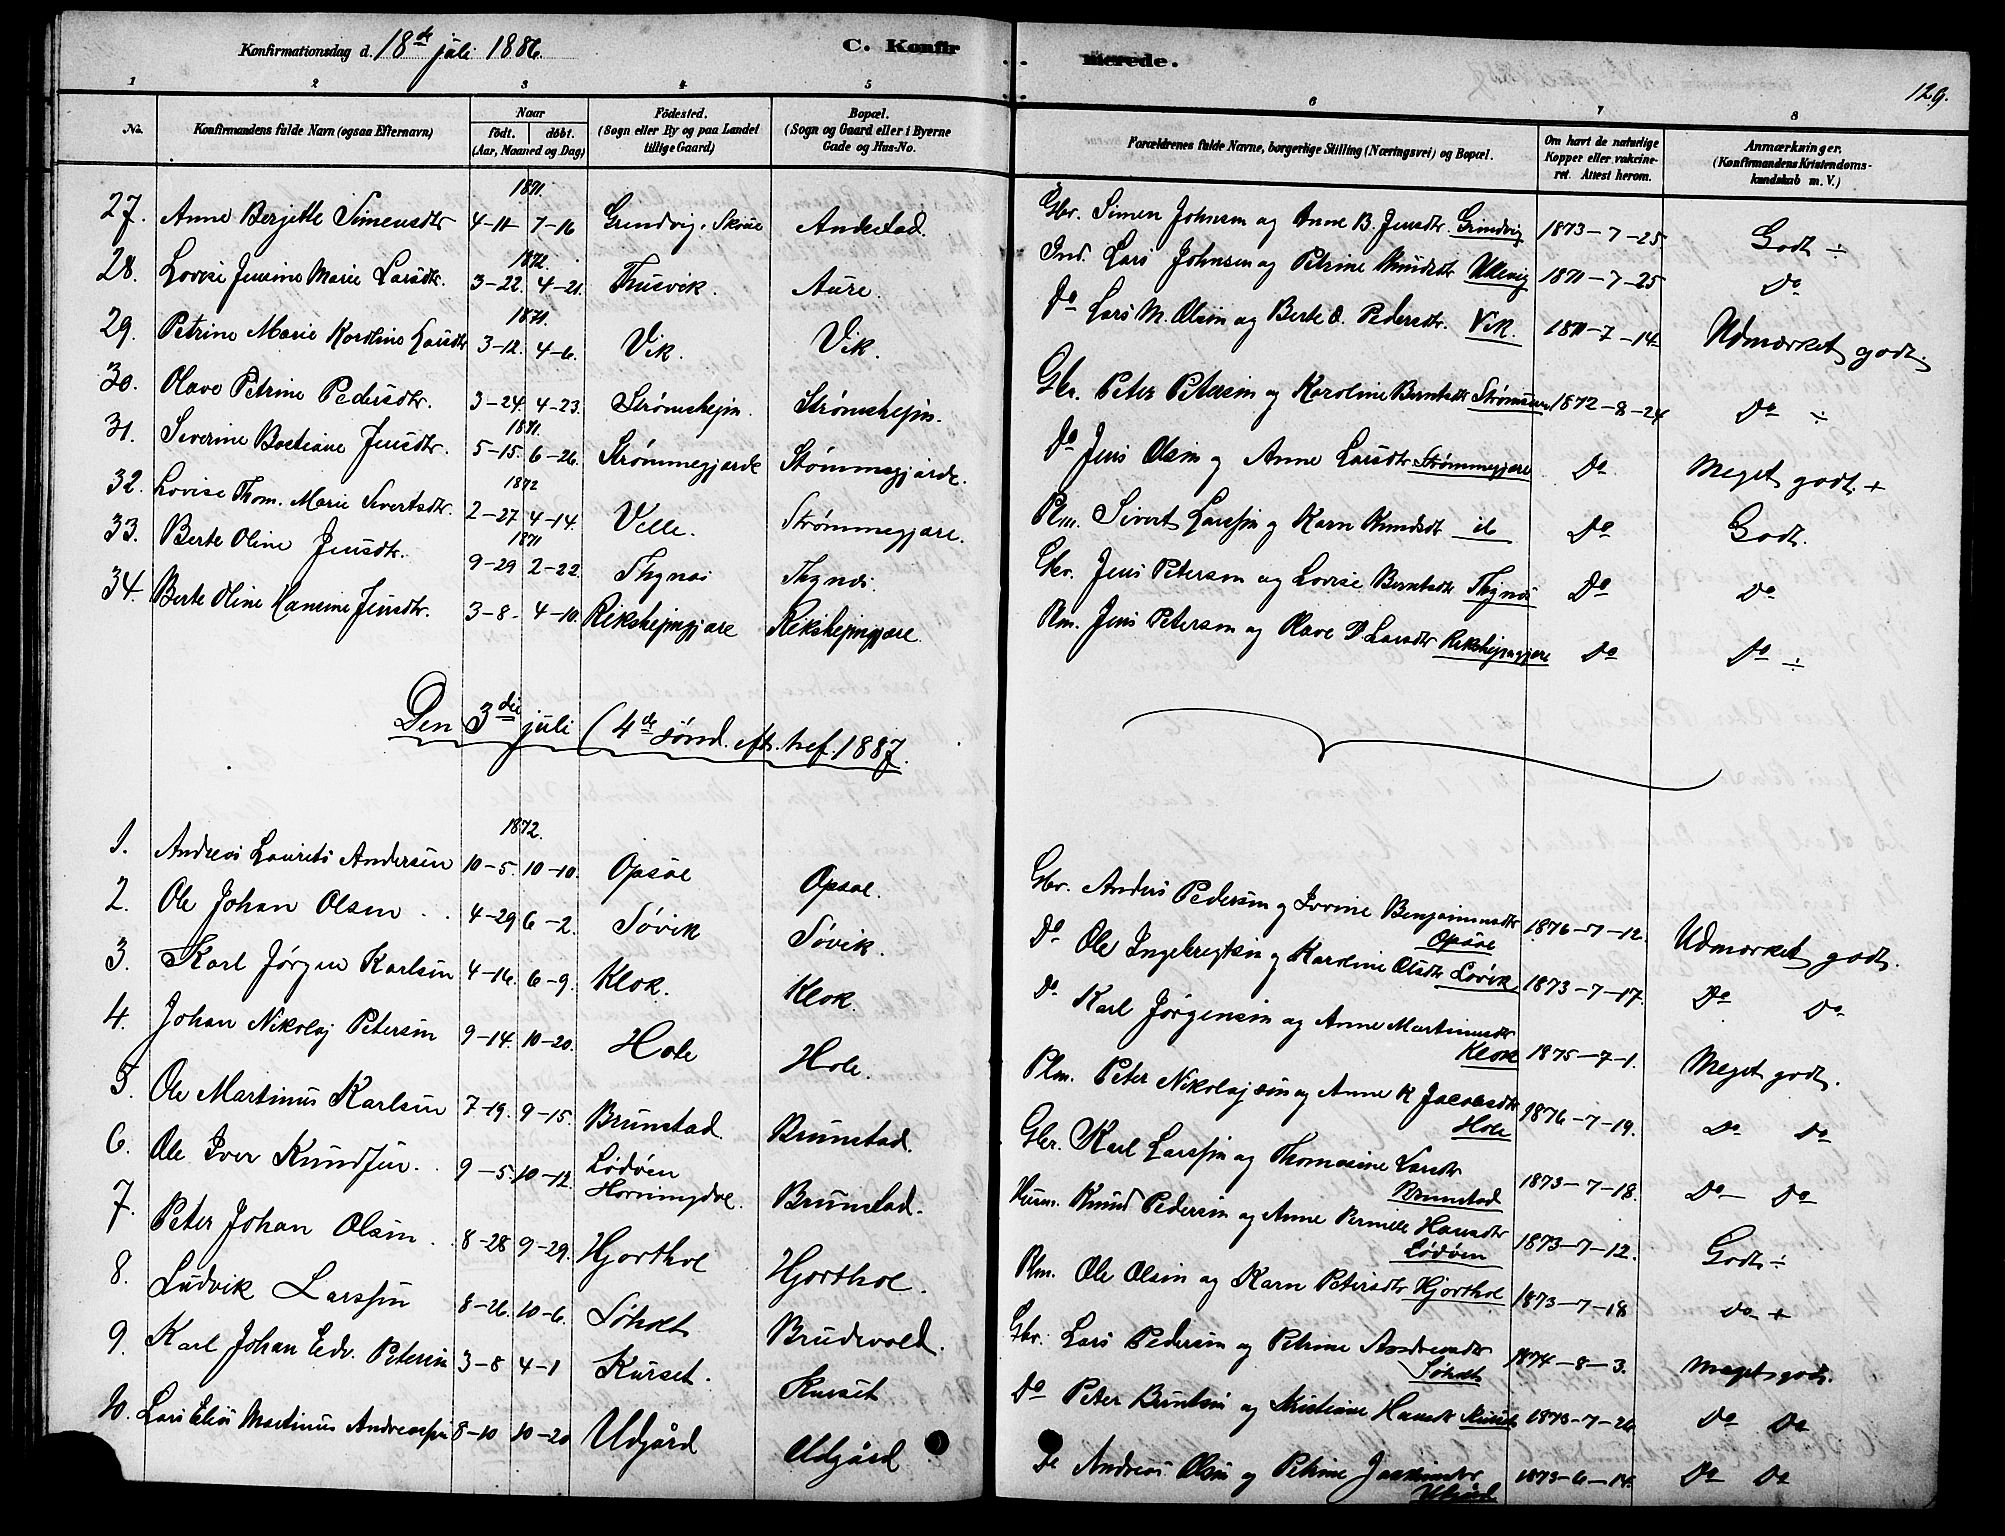 Konfirmationsdag d. 18de juli 1886.
C. Konfirmerede.
129.
1 2 3 4 5 6 7 8
No.
Konfirmandens fulde Navn (ogsaa Efternavn)
Naar
født. døbt.
(Aar, Maaned og Dag)
Fødested.
(Sogn eller By og paa Landet
tillige Gaard)
Bopæl.
(Sogn og Gaard eller i Byerne
Gade og Hus-No.
Forældrenes fulde Navne, borgerlige Stilling (Næringsvei) og Bopæl.
Om havt de naturlige
Kopper eller vakcine-
ret. Attest herom.
Anmærkninger.
(Konfirmandens Kristendoms-
kundskab m. V.)
1871.
27. Anne Berjitte Simensdtr 4-11 7-16 Grundvig, Skoue Andestad. Gbr. Simen Johnsen og Anne B. Jensdtr. Grindvig 1873-7-25 Godt ÷
1872.
28. Lovise Jensine Marie Larsdtr. 3-22. 4-21. Thusvik. Aure. Ind. Lars Johnsen og Petrine Knudsdtr 1871-7-25 Do
1871.
29. Petrine Marie Karoline Larsdtr 3-12. 4-6. Vik. Vik. Do Lars M. Olsen og Berte O. Pedersdtr. Vik. 1871-7-14 Udmærket godt.
30. Olave Petrine Pedersdtr. 3-24. 4-23. Strømshejm. Strømshejm. Gbr. Peter Petersen og Karoline Berntsdtr 1872-8-24 Do ÷
1871.
31. Severine Bastiane Jensdtr. 5-15. 6-26. Strømmegjærde Strømmegjærde. Do Jens Olsen og Anne Larsdtr Strømmegjære Do. Meget godt. +
1872
32. Lovise Thom. Marie Sivertsdtr. 2-27 4-14. Velle. Strømmegjære. Plm. Sivert Larssen og Karn Knudsdtr ib Do Godt.
1871
33. Berte Oline Jensdtr. 9-29 2-22. Thynæs Thynæs. Gbr. Jens Peterson og Lovise Berntsdtr Thynæs Do Do
34. Berte Oline Hansine Jensdtr. 3-8. 4-10. Rekshejmgjære Rekshejmgjære. Plm. Jens Peterson og Olave P. Larsdtr Rekshejmgjære Do Do ÷
Den 3die juli (4de sønd. eft. tref. 1887.
1872.
1. Andreas Laurits Andersen 10-5. 10-10. Opsøe Opsøe. Gbr. Anders Pedersen og Benjaminsdtr 1876-7-12. Udmærket godt.
Opsøe
2. Ole Johan Olsen 4-29 6-2. Søvik Søvik. Do Ole Ingebregtsen og Karoline Olsdtr Søvik 1873-7-17. Do Do
3. Karl Jørgen Karlsen 4-16. 6-9. Klok. Klok. Do Karl Jørgensen og Anne Martinusdtr 1875-7-1. Meget godt.
Klok
4. Johan Nikolaj Petersen 9-14. 10-20. Hole Hole. Plm. Peter Nikolajsen og Anne K Jacobsdtr 1876-7-19. Do Do
Hole
5. Ole Martinus Karlsen 7-19. 9-15. Brunstad Brunstad. Gbr. Karl Larssen og Thomasine Larsdtr 1873-7-18. Do Do
Brunstad
6. Ole Iver Knudsen. 9-5 10-12. Lødøen Brunstad. Husm. Knud Pedersen og Anne Pernille Hansdtr 1873-7-12. Godt ÷
Horningdal. Lødøen
7. Peter Johan Olsen 8-28 9-29. Hjorthol Hjorthol. Plm. Ole Olsen og Karn Petersdtr Hjorthol 1873-7-18 Do +
8. Ludvik Larssen 8-26. 10-6. Søholt Brudevold. Gbr. Lars Pedersen og Petrine Andreasdtr 1874-8-3. Meget godt.
Søholt
9. Karl Johan Edv. Petersen 3-8 4-1 Kurset. Kurset Do Peter Berntsen og Kristiane Hansdtr Kurset 1873-7-26 Do Do
10. Lars Elias Martinus Andreassen 8-10 10-20 Udgård Udgård Do Andreas Olsen og Petrine 1873-6-14. Do Do
Udgård